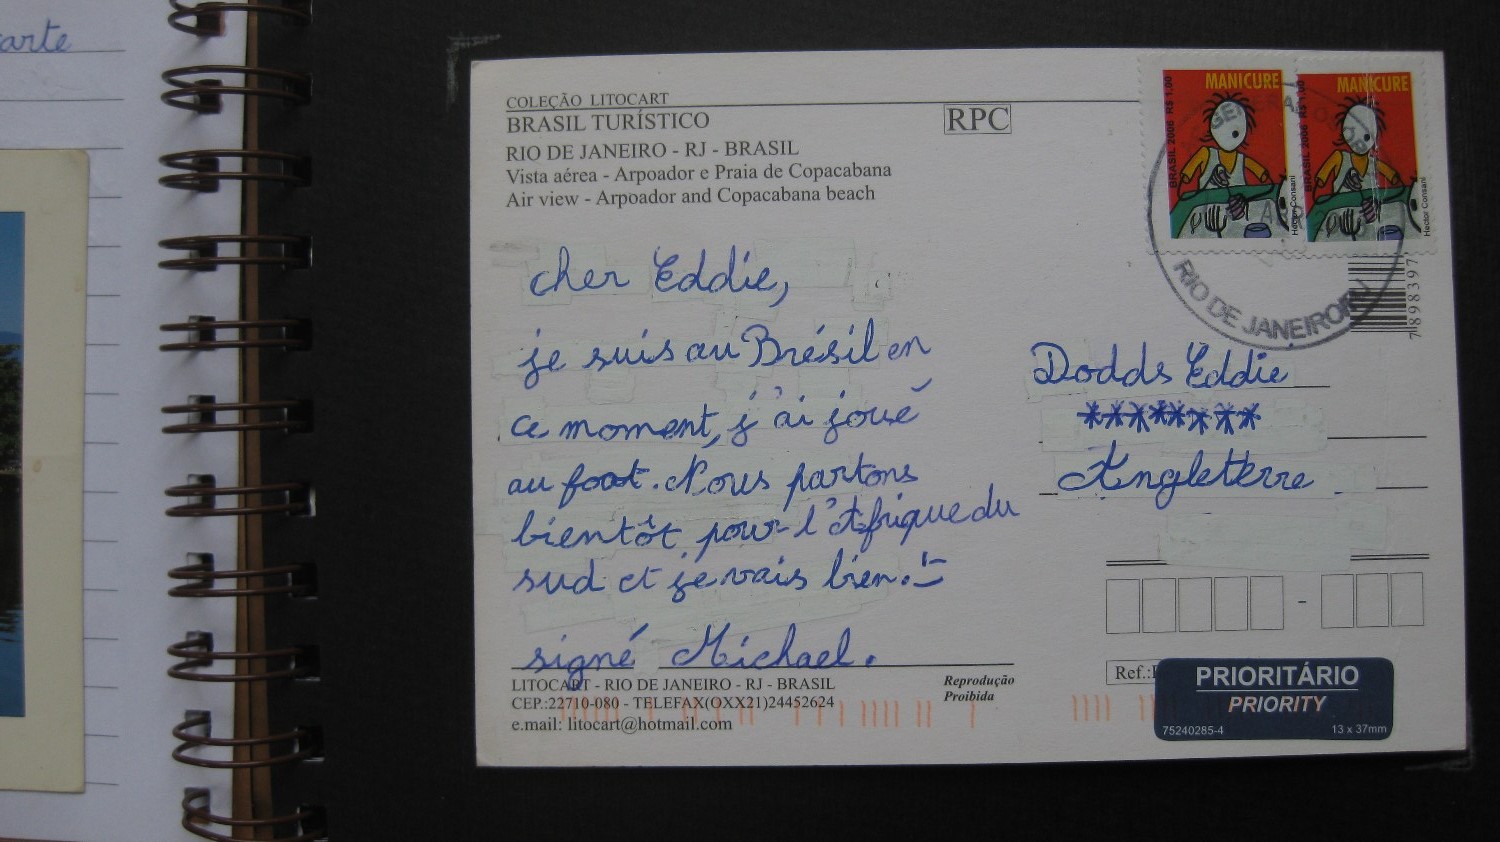 arte
COLEÇÃO LITOCART
BRASIL TURÍSTICO
RPC
RIO DE JANEIRO - RJ - BRASIL
Vista aérea - Arpoador e Praia de Copacabana
Air view - Arpoador and Copacabana beach
MANICURE
BRASIL 2006 R$ 1,00
Hector Consani
MANICURE
BRASIL 2006 R$ 1,00
Hector Consani
RIO DE JANEIRO/RJ
7898397
cher Eddie,
je suis au Brésil en
ce moment, j'ai joué
au foot. Nous partons
bientôt pour l'Afrique du
sud et je vais bien. :)
signé Michael.
Dodds Eddie
********
Angleterre
LITOCART - RIO DE JANEIRO - RJ - BRASIL
CEP.:22710-080 - TELEFAX(OXX21)24452624
e.mail: litocart@hotmail.com
Reprodução
Proibida
Ref.:
PRIORITÁRIO
PRIORITY
75240285-4 13 x 37mm